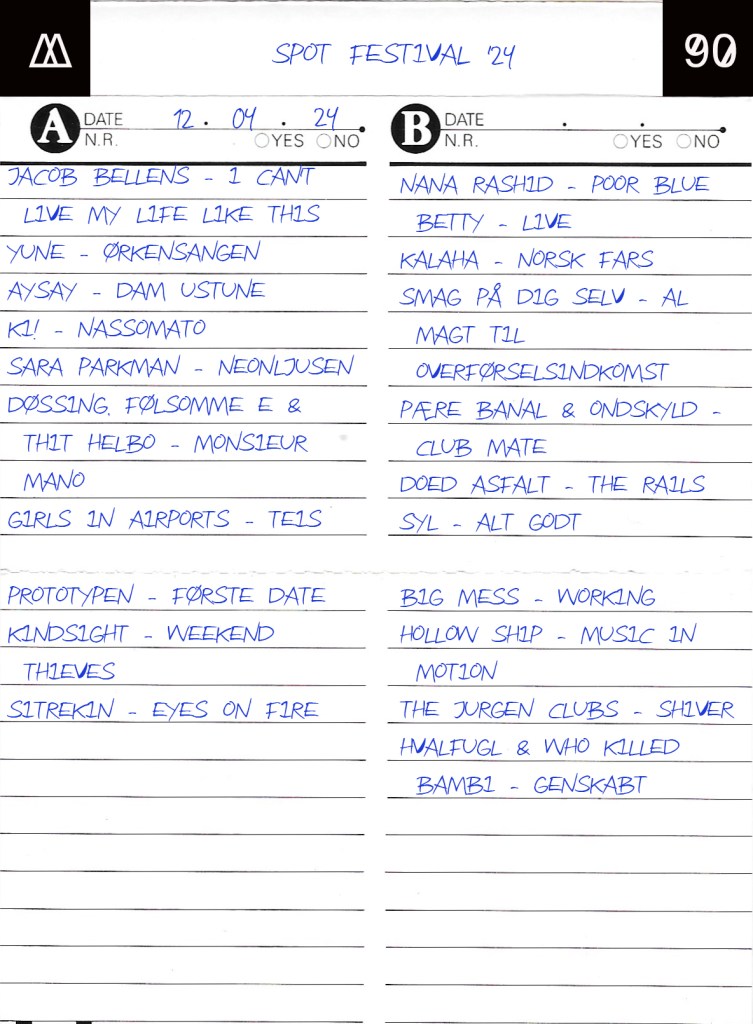 SPOT FESTIVAL '24
90
A DATE 12 . 04 . 24
N.R. YES NO
JACOB BELLENS - I CAN'T
LIVE MY LIFE LIKE THIS
YUNE - ØRKENSANGEN
AYSAY - DAM USTUNE
KI! - NASSOMATO
SARA PARKMAN - NEONLJUSEN
DØSSING, FØLSOMME E &
THIT HELBO - MONSIEUR
MANO
GIRLS IN AIRPORTS - TEIS
PROTOTYPEN - FØRSTE DATE
KINDSIGHT - WEEKEND
THIEVES
SITREKIN - EYES ON FIRE
B DATE . .
N.R. YES NO
NANA RASHID - POOR BLUE
BETTY - LIVE
KALAHA - NORSK FARS
SMAG PÅ DIG SELV - AL
MAGT TIL
OVERFØRSELSINDKOMST
PÆRE BANAL & ONDSKYLD -
CLUB MATE
DOED ASFALT - THE RAILS
SYL - ALT GODT
BIG MESS - WORKING
HOLLOW SHIP - MUSIC IN
MOTION
THE JURGEN CLUBS - SHIVER
HVALFUGL & WHO KILLED
BAMBI - GENSKABT